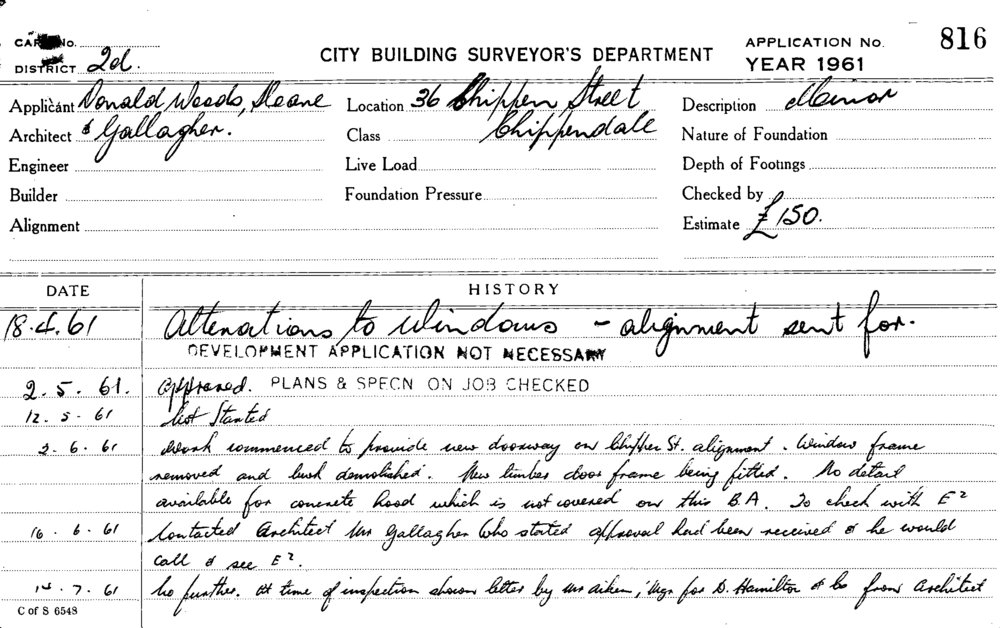 CARD No.
DISTRICT 2d.
CITY BUILDING SURVEYOR'S DEPARTMENT
APPLICATION No. 816
YEAR 1961
Applicant Donald Woods, Deane
Architect & Gallagher.
Engineer
Builder
Alignment
Location 36 Chippen Street
Class Chippendale
Live Load
Foundation Pressure
Description Minor
Nature of Foundation
Depth of Footings
Checked by
Estimate £150.
DATE HISTORY
18.4.61 Alterations to windows - alignment sent for.
DEVELOPMENT APPLICATION NOT NECESSARY
2.5.61. Approved. PLANS & SPECN ON JOB CHECKED
12.5.61 Not Started
2.6.61 Work commenced to provide new doorway on Chippen St. alignment. Window frame
removed and demolished. New timber door frame being fitted. No detail
available for concrete hood which is not covered on this B.A. To check with E²
16.6.61 Contacted Architect Mr Gallagher who stated approval had been received & he would
call & see E².
14.7.61 No further. At time of inspection shown letter by Mr Aiken, Mgr for D. Hamilton & Co from Architect
C of S 6548